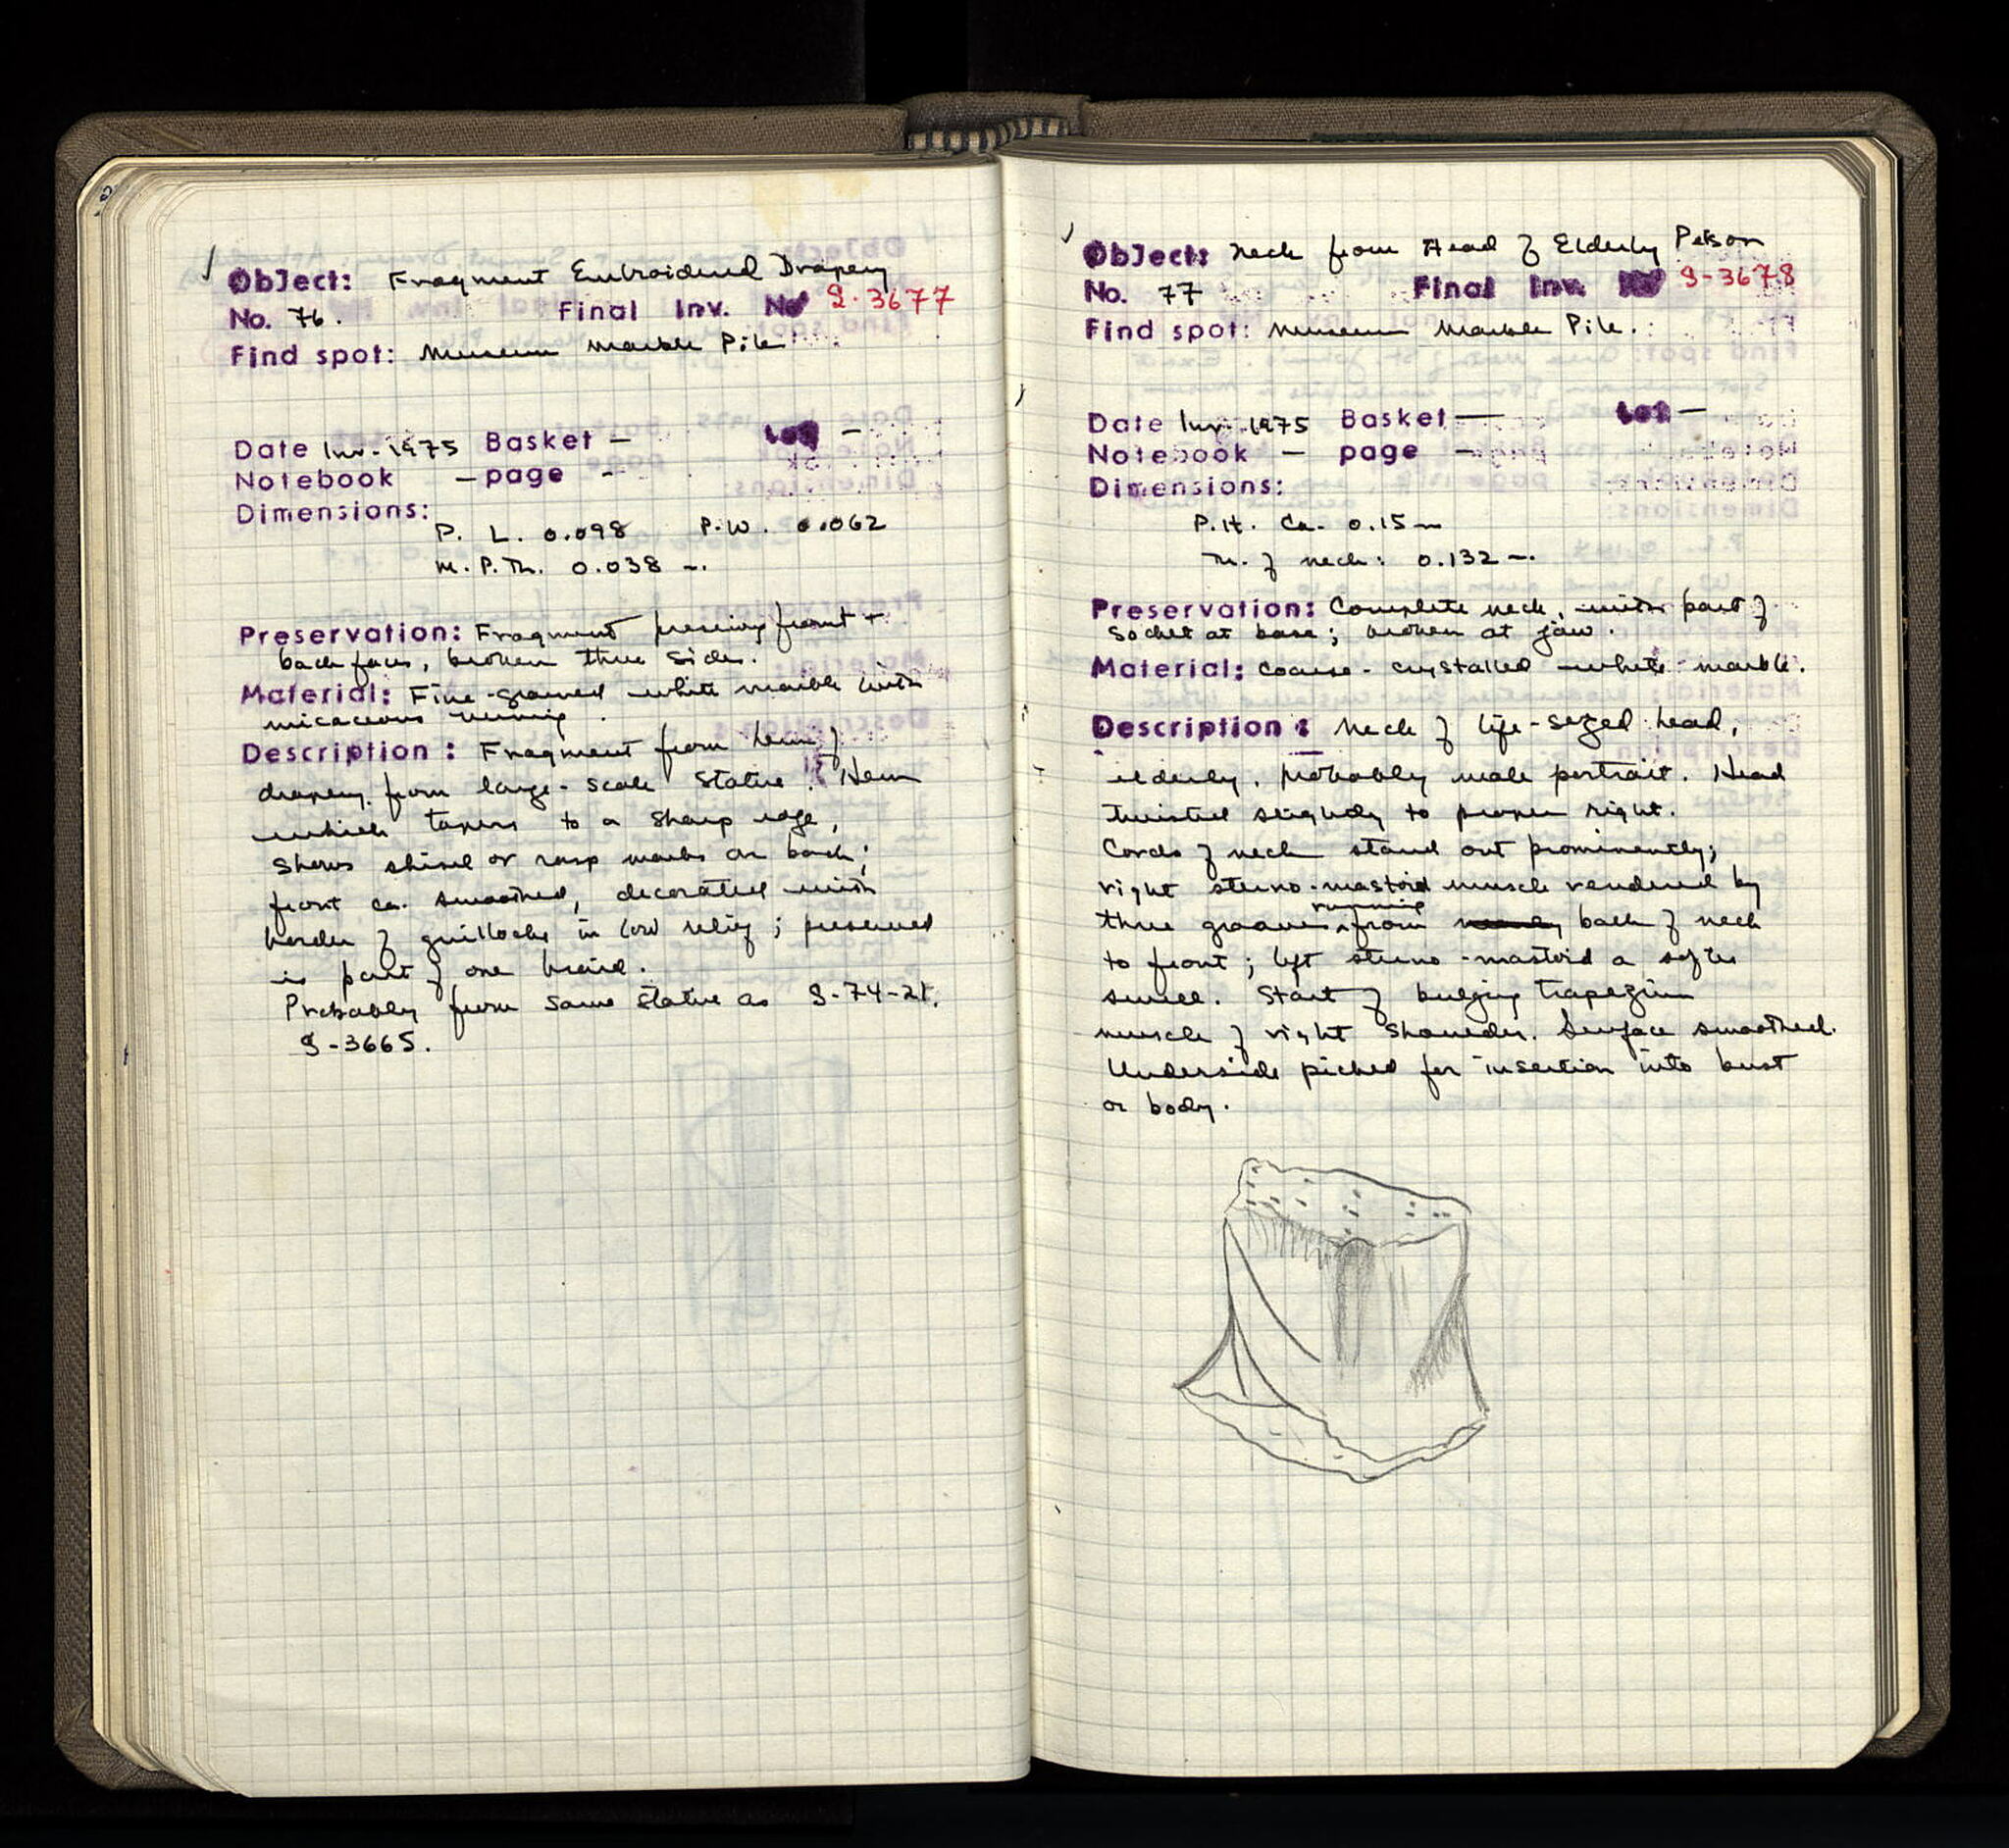 Object: Fragment Embroidered Drapery
No. 76. Final Inv. No S-3677
Find spot: Museum Marble Pile
Date Inv-1975 Basket - Lot -
Notebook - page -
Dimensions:
P. L. 0.098 P.W. 0.062
M. P. Th. 0.038 m.
Preservation: Fragment preserving front +
back faces, broken three sides.
Material: Fine-grained white marble with
micaceous veining.
Description: Fragment from hem of
drapery from large-scale statue. Hem
which tapers to a sharp edge,
shows chisel or rasp marks on back;
front ca. smoothed, decorated with
border of guilloche in low relief; preserved
is part of one braid.
Probably from same statue as S-74-21.
S-3665.
Object: Neck from Head of Elderly Person
No. 77 Final Inv. No S-3678
Find spot: Museum Marble Pile.
Date Inv. 1975 Basket — Lot -
Notebook - page -
Dimensions:
P.H. ca. 0.15 m
Th. of neck: 0.132 m.
Preservation: Complete neck, with part of
socket at base; broken at jaw.
Material: Coarse-crystalled white marble.
Description: Neck of life-sized head,
elderly, probably male portrait. Head
twisted slightly to proper right.
Cords of neck stand out prominently;
right sterno-mastoid muscle rendered by
three grooves running from back of neck
to front; left sterno-mastoid a softer
swell. Start of bulging trapezium
muscle of right shoulder. Surface smoothed.
Underside picked for insertion into bust
or body.